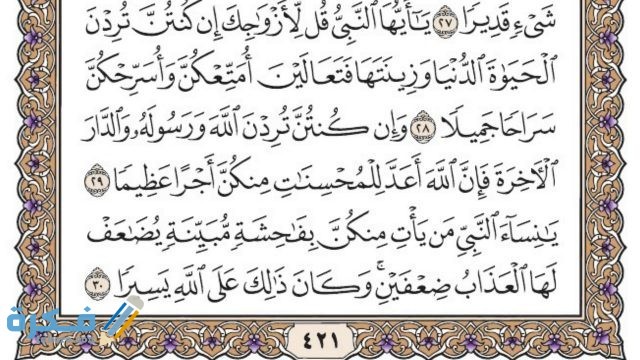 شَىْءٍ قَدِيرًا ٢٧ يَٰٓأَيُّهَا ٱلنَّبِىُّ قُل لِّأَزْوَٰجِكَ إِن كُنتُنَّ تُرِدْنَ
ٱلْحَيَوٰةَ ٱلدُّنْيَا وَزِينَتَهَا فَتَعَالَيْنَ أُمَتِّعْكُنَّ وَأُسَرِّحْكُنَّ
سَرَاحًا جَمِيلًا ٢٨ وَإِن كُنتُنَّ تُرِدْنَ ٱللَّهَ وَرَسُولَهُۥ وَٱلدَّارَ
ٱلْأَخِرَةَ فَإِنَّ ٱللَّهَ أَعَدَّ لِلْمُحْسِنَٰتِ مِنكُنَّ أَجْرًا عَظِيمًا ٢٩
يَٰنِسَآءَ ٱلنَّبِىِّ مَن يَأْتِ مِنكُنَّ بِفَٰحِشَةٍ مُّبَيِّنَةٍ يُضَٰعَفْ
لَهَا ٱلْعَذَابُ ضِعْفَيْنِ ۚ وَكَانَ ذَٰلِكَ عَلَى ٱللَّهِ يَسِيرًا ٣٠
٤٢١
فكرة